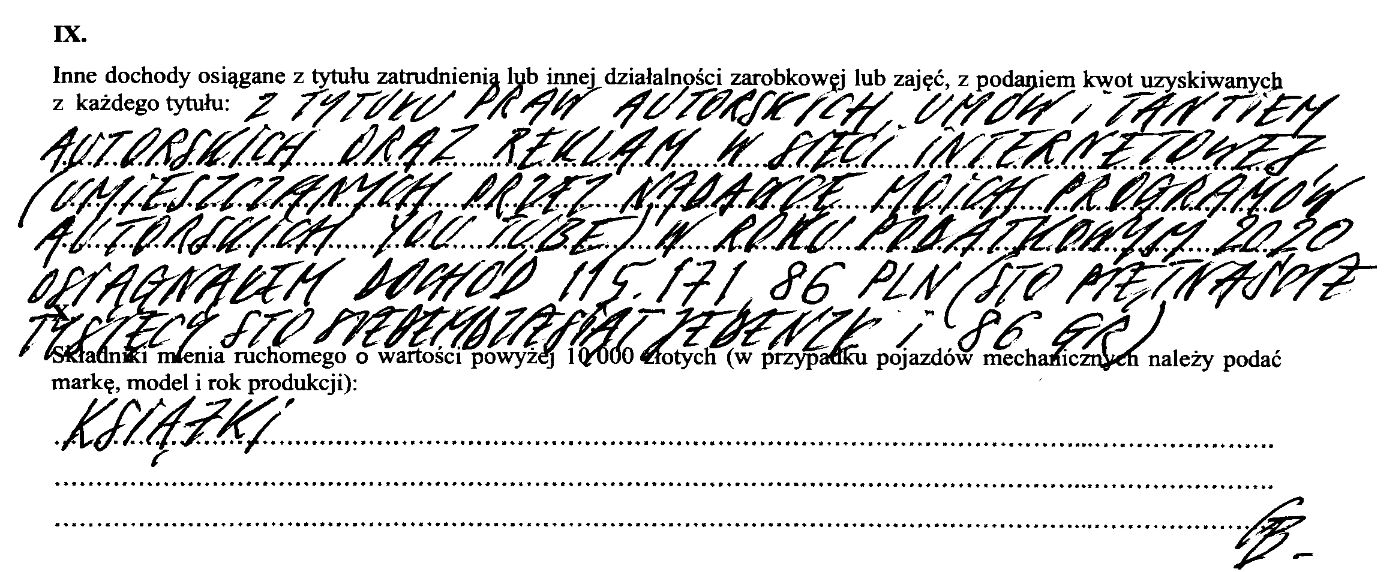 IX.
Inne dochody osiągane z tytułu zatrudnienia lub innej działalności zarobkowej lub zajęć, z podaniem kwot uzyskiwanych
z każdego tytułu: Z TYTUŁU PRAW AUTORSKICH, UMÓW I TANTIEM
AUTORSKICH ORAZ REKLAM W SIECI INTERNETOWEJ
(UMIESZCZANYCH PRZEZ NADAWCĘ MOICH PROGRAMÓW
AUTORSKICH YOU TUBE) W ROKU PODATKOWYM 2020
OSIĄGNĄŁEM DOCHÓD 115.171,86 PLN (STO PIĘTNAŚCIE
TYSIĘCY STO SIEDEMDZIESIĄT JEDEN ZŁ I 86 GR)
X.
Składniki mienia ruchomego o wartości powyżej 10 000 złotych (w przypadku pojazdów mechanicznych należy podać
markę, model i rok produkcji):
KSIĄŻKI